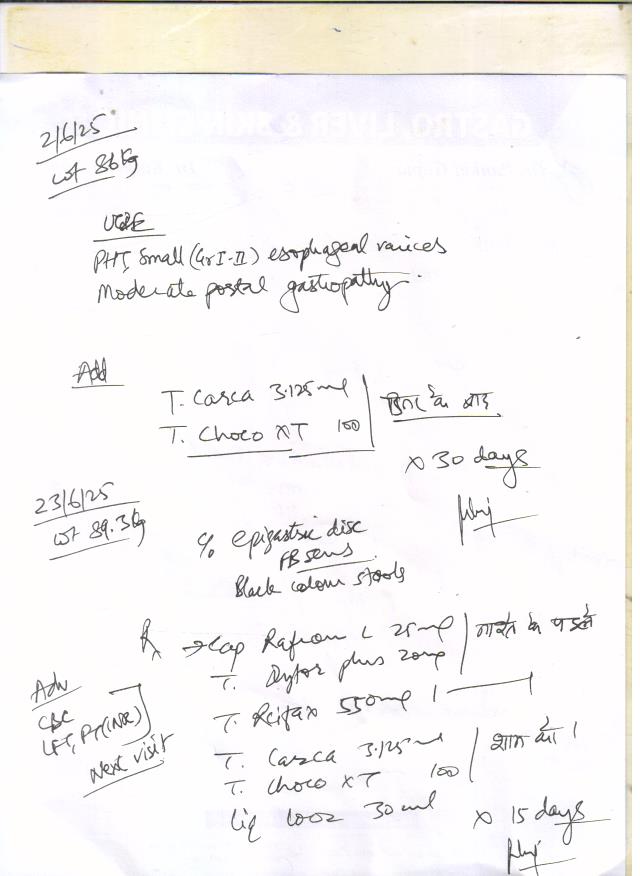 2/6/25
wt 86kg
UGIE
PHT, Small (Gr I-II) esophageal varices
Moderate postal gastropathy.
Add
T. Carca 3.125mg
T. Choco XT 100
डिनर के बाद
x 30 days
23/6/25
wt 89.3kg
c/o epigastric disc
FB sens
Black colour stools
Rx → Cap 25mg
T. Dytor plus 20mg
नाश्ते के पहले
T. Rcifax 550mg 1 — 1
Adv
CBC
LFT, PT(INR)
Next visit
T. Carca 3.125mg
T. Choco XT 100
शाम को 1
liq looz 30ml
x 15 days